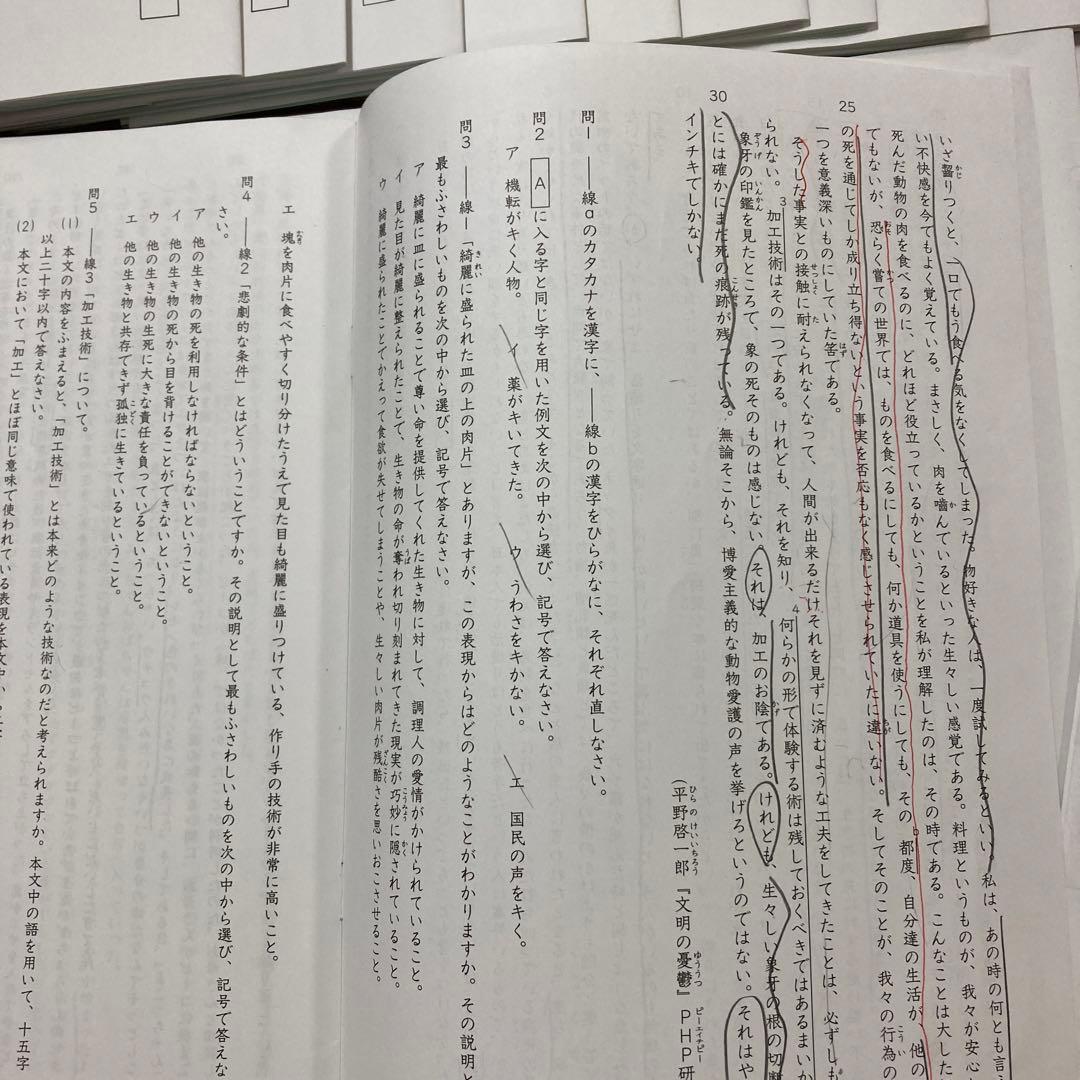 いざ齧りつくと、一口でもう食べる気をなくしてしまった。物好きな人は、一度試してみるといい。私は、あの時の何とも言え
い不快感を今でもよく覚えている。まさしく、肉を嚙んでいるといった生々しい感覚である。料理というものが、我々が安心
死んだ動物の肉を食べるのに、どれほど役立っているかということを私が理解したのは、その時である。こんなことは大した
てもないが、恐らく嘗ての世界では、ものを食べるにしても、何か道具を使うにしても、その都度、自分達の生活が、他の
25
の死を通じてしか成り立ち得ないという事実を否応もなく感じさせられていたに違いない。そしてそのことが、我々の行為の
一つを意義深いものにしていた筈である。
そうした事実との接触に耐えられなくなって、人間が出来るだけそれを見ずに済むような工夫をしてきたことは、必ずしも
られない。3加工技術はその一つである。けれども、それを知り、4何らかの形で体験する術は残しておくべきではあるまいか
象牙の印鑑を見たところで、象の死そのものは感じない。それは、加工のお陰である。けれども、生々しい象牙の根の切断
30
とには確かにまだ死の痕跡が残っている。無論そこから、博愛主義的な動物愛護の声を挙げろというのではない。それはや
インチキでしかない。
（平野啓一郎『文明の憂鬱』PHP研
問1 ――線aのカタカナを漢字に、――線bの漢字をひらがなに、それぞれ直しなさい。
問2 Aに入る字と同じ字を用いた例文を次の中から選び、記号で答えなさい。
ア 機転がキく人物。 イ 薬がキいてきた。 ウ うわさをキかない。 エ 国民の声をキく。
問3 ――線1「綺麗に盛られた皿の上の肉片」とありますが、この表現からはどのようなことがわかりますか。その説明と
最もふさわしいものを次の中から選び、記号で答えなさい。
ア 綺麗に皿に盛られることで尊い命を提供してくれた生き物に対して、調理人の愛情がかけられていること。
イ 見た目が綺麗に整えられたことで、生き物の命が奪われ切り刻まれてきた現実が巧妙に隠されていること。
ウ 綺麗に盛られたことでかえって食欲が失せてしまうことや、生々しい肉片が残酷さを思いおこさせること。
エ 塊を肉片に食べやすく切り分けたうえで見た目も綺麗に盛りつけている、作り手の技術が非常に高いこと。
問4 ――線2「悲劇的な条件」とはどういうことですか。その説明として最もふさわしいものを次の中から選び、記号で答えな
さい。
ア 他の生き物の死を利用しなければならないということ。
イ 他の生き物の死から目を背けることができないということ。
ウ 他の生き物の生死に大きな責任を負っているということ。
エ 他の生き物と共存できず孤独に生きているということ。
問5 ――線3「加工技術」について。
(1) 本文の内容をふまえると、「加工技術」とは本来どのような技術なのだと考えられますか。本文中の語を用いて、十五字
以上二十字以内で答えなさい。
(2) 本文において「加工」とほぼ同じ意味で使われている表現を本文中から